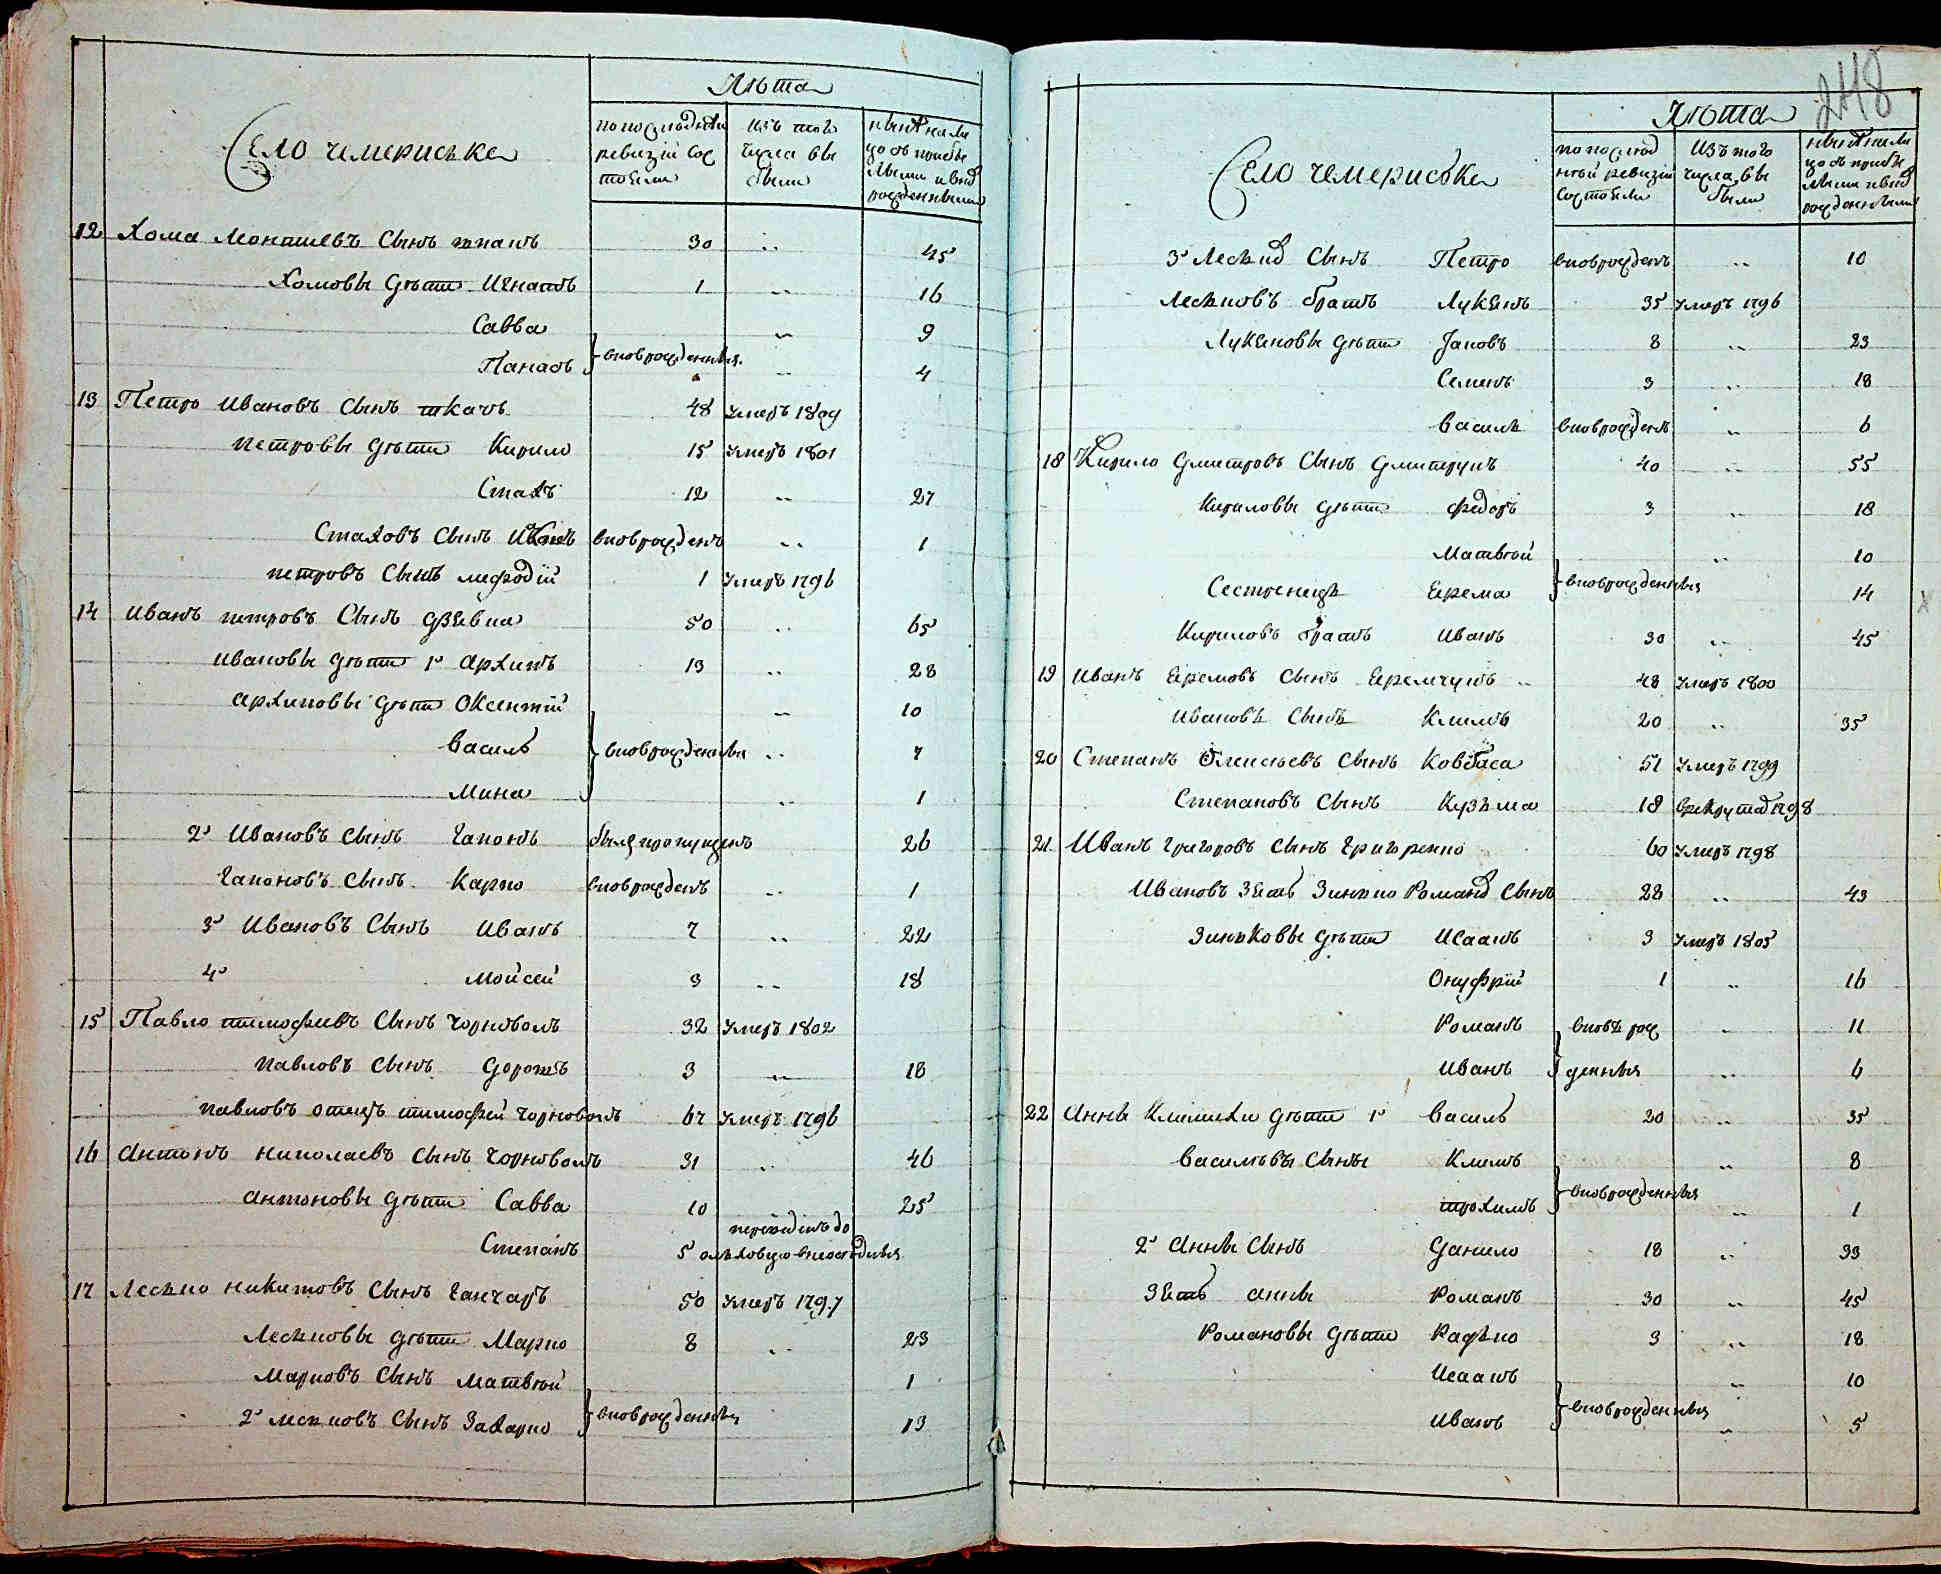 Село Чемериська
Лѣта
по последней ревизіи состояли
изъ того числа выбыли
нынѣ на лицо съ прибылыми и вновь рожденными
12 Хома Монашевъ сынъ ткачъ 30 .. 45
Хомовы дѣти Игнатъ 1 .. 16
Савва .. 9
Панасъ вновьрожденныя .. 4
13 Петро Ивановъ сынъ ткачъ 48 умеръ 1809
Петровы дѣти Кирило 15 умеръ 1801
Стахъ 12 .. 27
Стаховъ сынъ вновьрожденъ .. 1
Петровъ сынъ Мефодій 1 умеръ 1796
14 Иванъ Петровъ сынъ 50 .. 65
Ивановы дѣти 1й Архипъ 13 .. 28
Архиповы дѣти Оксентій .. 10
Василь вновьрожденныя .. 7
Мина .. 1
2й Ивановъ сынъ Гапонъ былъ пропущенъ 26
Гапоновъ сынъ Карпо вновьрожденъ .. 1
3й Ивановъ сынъ Иванъ 7 .. 22
4й Мойсей 3 .. 18
15 Павло Тимофеевъ сынъ Чорноволъ 32 умеръ 1802
Павловъ сынъ Дорошъ 3 .. 18
Павловъ отецъ Тимофей Чорноволъ 67 умеръ 1796
16 Антонъ Николаевъ сынъ Чорноволъ 31 .. 46
Антоновы дѣти Савва 10 25
переведенъ до
Степанъ 5
17 Леско Никитовъ сынъ Ганчаръ 50 умеръ 1797
Лесковы дѣти Марко 8 .. 23
Марковъ сынъ Матвѣй 1
2й Лесковъ сынъ Захарко вновьрожденныя 13
248
Село Чемериська
Лѣта
по последней ревизіи состояли
изъ того числа выбыли
нынѣ на лицо съ прибылыми и вновь рожденными
3й Леськів сынъ Петро вновьрожденъ .. 10
Лесковъ братъ Лукянъ 35 умеръ 1796
Лукяновы дѣти Яковъ 8 .. 23
Семенъ 3 .. 18
Василь вновьрожденъ .. 6
18 Кирило Дмитровъ сынъ Дмитрукъ 40 .. 55
Кириловы дѣти Федоръ 3 .. 18
Матвѣй .. 10
Сестренецъ Ярема вновьрожденныя 14
Кириловъ братъ Иванъ 30 .. 45
19 Иванъ Яремовъ сынъ Яремчукъ .. 48 умеръ 1800
Ивановъ сынъ Климъ 20 .. 35
20 Степанъ Олексіевъ сынъ Ковбаса 51 умеръ 1799
Степановъ сынъ Кузьма 18 врекрутах 1798
21 Иванъ Григоровъ сынъ Григоренко 60 умеръ 1798
Ивановъ зять Зинько Романів сынъ 28 .. 43
Зиньковы дѣти Исаакъ 3 умеръ 1805
Онуфрій 1 .. 16
Романъ вновь рож .. 11
Иванъ денныя .. 6
22 Анны Климихи дѣти 1й Василь 20 .. 35
Васильвы сыны Климъ .. 8
Трохимъ вновьрожденныя .. 1
2й Анны сынъ Данило 18 .. 33
Зять Анны Романъ 30 .. 45
Романовы дѣти Радько 3 .. 18
Исаакъ .. 10
Иванъ вновьрожденныя .. 5